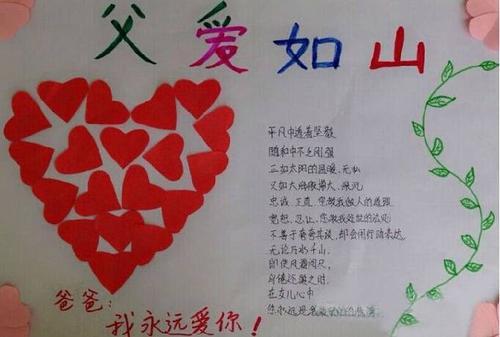 父爱如山
平凡中透着坚毅
随和中不乏刚强
正如太阳的温暖、无私
又如大海般博大、深沉
忠诚、正直、您教我做人的道理
宽恕、忍让、您教我处世的
不善于夸夸其谈、却会用行动表达
无论万水千山、
即使风霜
在女儿心中
您永远是我
爸爸:
我永远爱你!